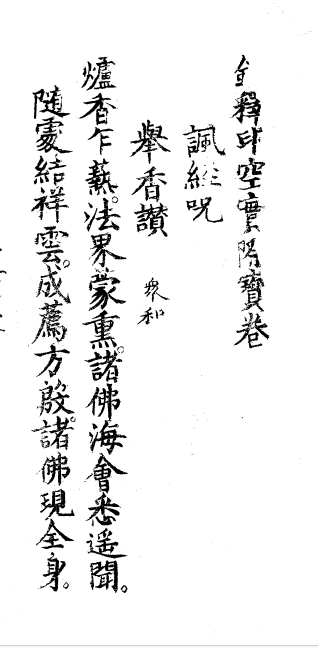 釋印空實際寶卷
諷經咒
舉香讚 衆和
爐香乍爇。法界蒙熏。諸佛海會悉遥聞。
隨處結祥雲。成薦方殷。諸佛現全身。